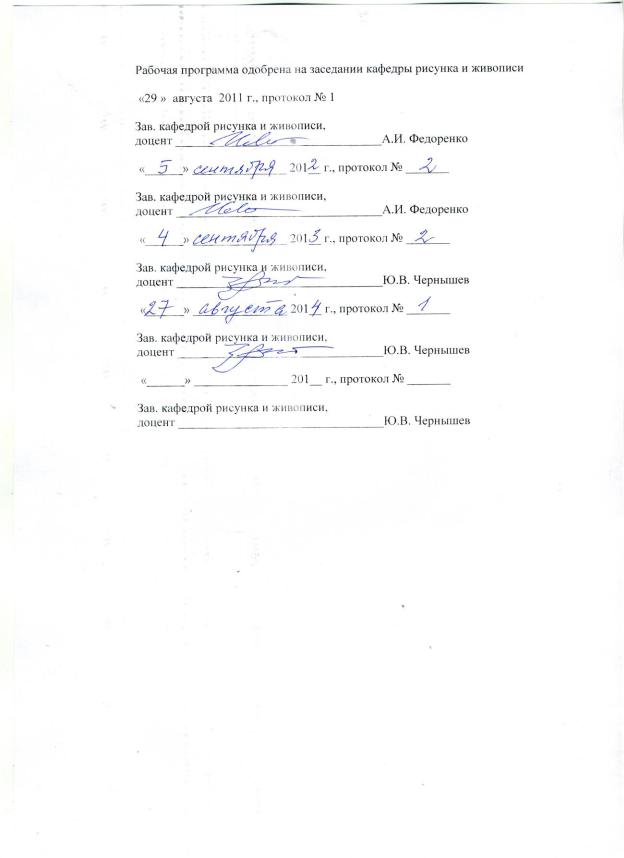 Рабочая программа одобрена на заседании кафедры рисунка и живописи
«29 » августа 2011 г., протокол № 1
Зав. кафедрой рисунка и живописи,
доцент ________________________________А.И. Федоренко
«__5__» сентября 2012 г., протокол № __2__
Зав. кафедрой рисунка и живописи,
доцент ________________________________А.И. Федоренко
«__4__» сентября 2013 г., протокол № __2__
Зав. кафедрой рисунка и живописи,
доцент ________________________________Ю.В. Чернышев
«27» августа 2014 г., протокол № __1__
Зав. кафедрой рисунка и живописи,
доцент ________________________________Ю.В. Чернышев
«______» _______________ 201__ г., протокол № _______
Зав. кафедрой рисунка и живописи,
доцент ________________________________Ю.В. Чернышев